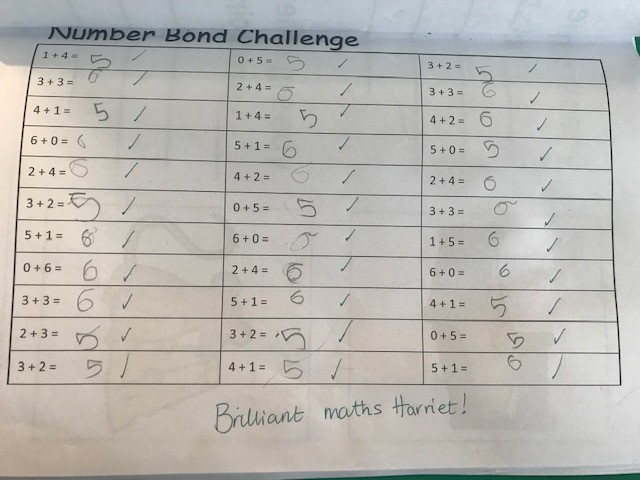 Number Bond Challenge
1 + 4 = 5 ✓ 0 + 5 = 5 ✓ 3 + 2 = 5 ✓
3 + 3 = 6 ✓ 2 + 4 = 6 ✓ 3 + 3 = 6 ✓
4 + 1 = 5 ✓ 1 + 4 = 5 ✓ 4 + 2 = 6 ✓
6 + 0 = 6 ✓ 5 + 1 = 6 ✓ 5 + 0 = 5 ✓
2 + 4 = 6 ✓ 4 + 2 = 6 ✓ 2 + 4 = 6 ✓
3 + 2 = 5 ✓ 0 + 5 = 5 ✓ 3 + 3 = 6 ✓
5 + 1 = 6 ✓ 6 + 0 = 6 ✓ 1 + 5 = 6 ✓
0 + 6 = 6 ✓ 2 + 4 = 6 ✓ 6 + 0 = 6 ✓
3 + 3 = 6 ✓ 5 + 1 = 6 ✓ 4 + 1 = 5 ✓
2 + 3 = 5 ✓ 3 + 2 = 5 ✓ 0 + 5 = 5 ✓
3 + 2 = 5 ✓ 4 + 1 = 5 ✓ 5 + 1 = 6 ✓
Brilliant maths Harriet!